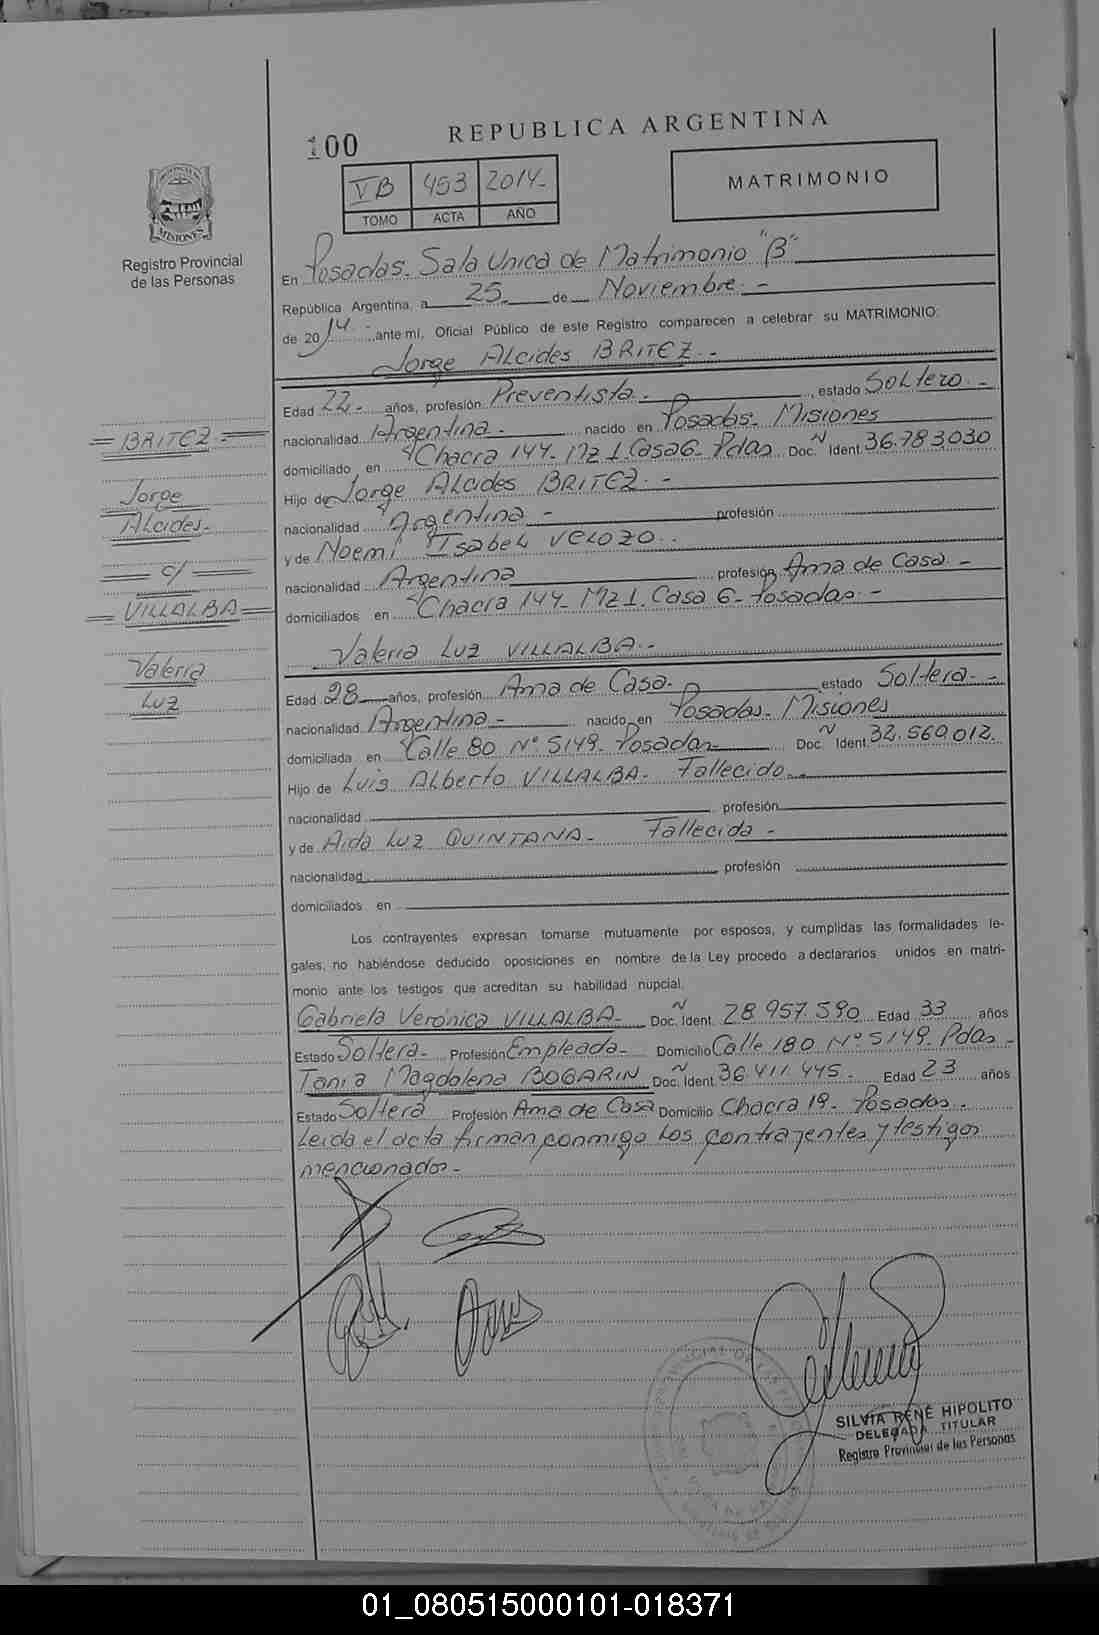 100
REPUBLICA ARGENTINA
VB 453 2014-
TOMO ACTA AÑO
MATRIMONIO
MISIONES
Registro Provincial
de las Personas
En Posadas. Sala Unica de Matrimonio "B"
República Argentina, a 25 de Noviembre.-
de 2014.- ante mí, Oficial Público de este Registro comparecen a celebrar su MATRIMONIO:
Jorge Alcides BRITEZ.-
Edad 22.- años, profesión Preventista.- , estado Soltero.-
nacionalidad Argentina.- nacido en Posadas. Misiones
domiciliado en Chacra 144- Mz 1. Casa 6- Pdas Doc. Ñ Ident. 36.783.030
Hijo de Jorge Alcides BRITEZ.-
nacionalidad Argentina- profesión
y de Noemí Isabel VELOZO..
nacionalidad Argentina profesión Ama de Casa.-
domiciliados en Chacra 144- Mz 1. Casa 6- Posadas.-
Valeria Luz VILLALBA.-
Edad 28 años, profesión Ama de Casa. estado Soltera.-
nacionalidad Argentina.- nacido en Posadas. Misiones
domiciliada en Calle 80 Nº 5149. Posadas Doc. Ñ Ident. 32.560.012.
Hijo de Luis Alberto VILLALBA. Fallecido.-
nacionalidad profesión
y de Aida Luz QUINTANA- Fallecida-
nacionalidad profesión
domiciliados en
Los contrayentes expresan tomarse mutuamente por esposos, y cumplidas las formalidades le-
gales, no habiéndose deducido oposiciones en nombre de la Ley procedo a declararlos unidos en matri-
monio ante los testigos que acreditan su habilidad nupcial.
Gabriela Verónica VILLALBA- Doc. Ñ Ident. 28.957.590 Edad 33 años
Estado Soltera- Profesión Empleada- Domicilio Calle 180 Nº 5149. Pdas-
Tania Magdalena BOGARIN Doc. Ñ Ident. 36.411.445. Edad 23 años
Estado Soltera Profesión Ama de Casa Domicilio Chacra 19. Posadas.
Leida el acta firman conmigo los contrayentes y testigos
mencionados-
= BRITEZ =
Jorge
Alcides-
= c/ =
= VILLALBA =
Valeria
Luz
SILVIA RENÉ HIPOLITO
DELEGADA TITULAR
Registro Provincial de las Personas
01_080515000101-018371